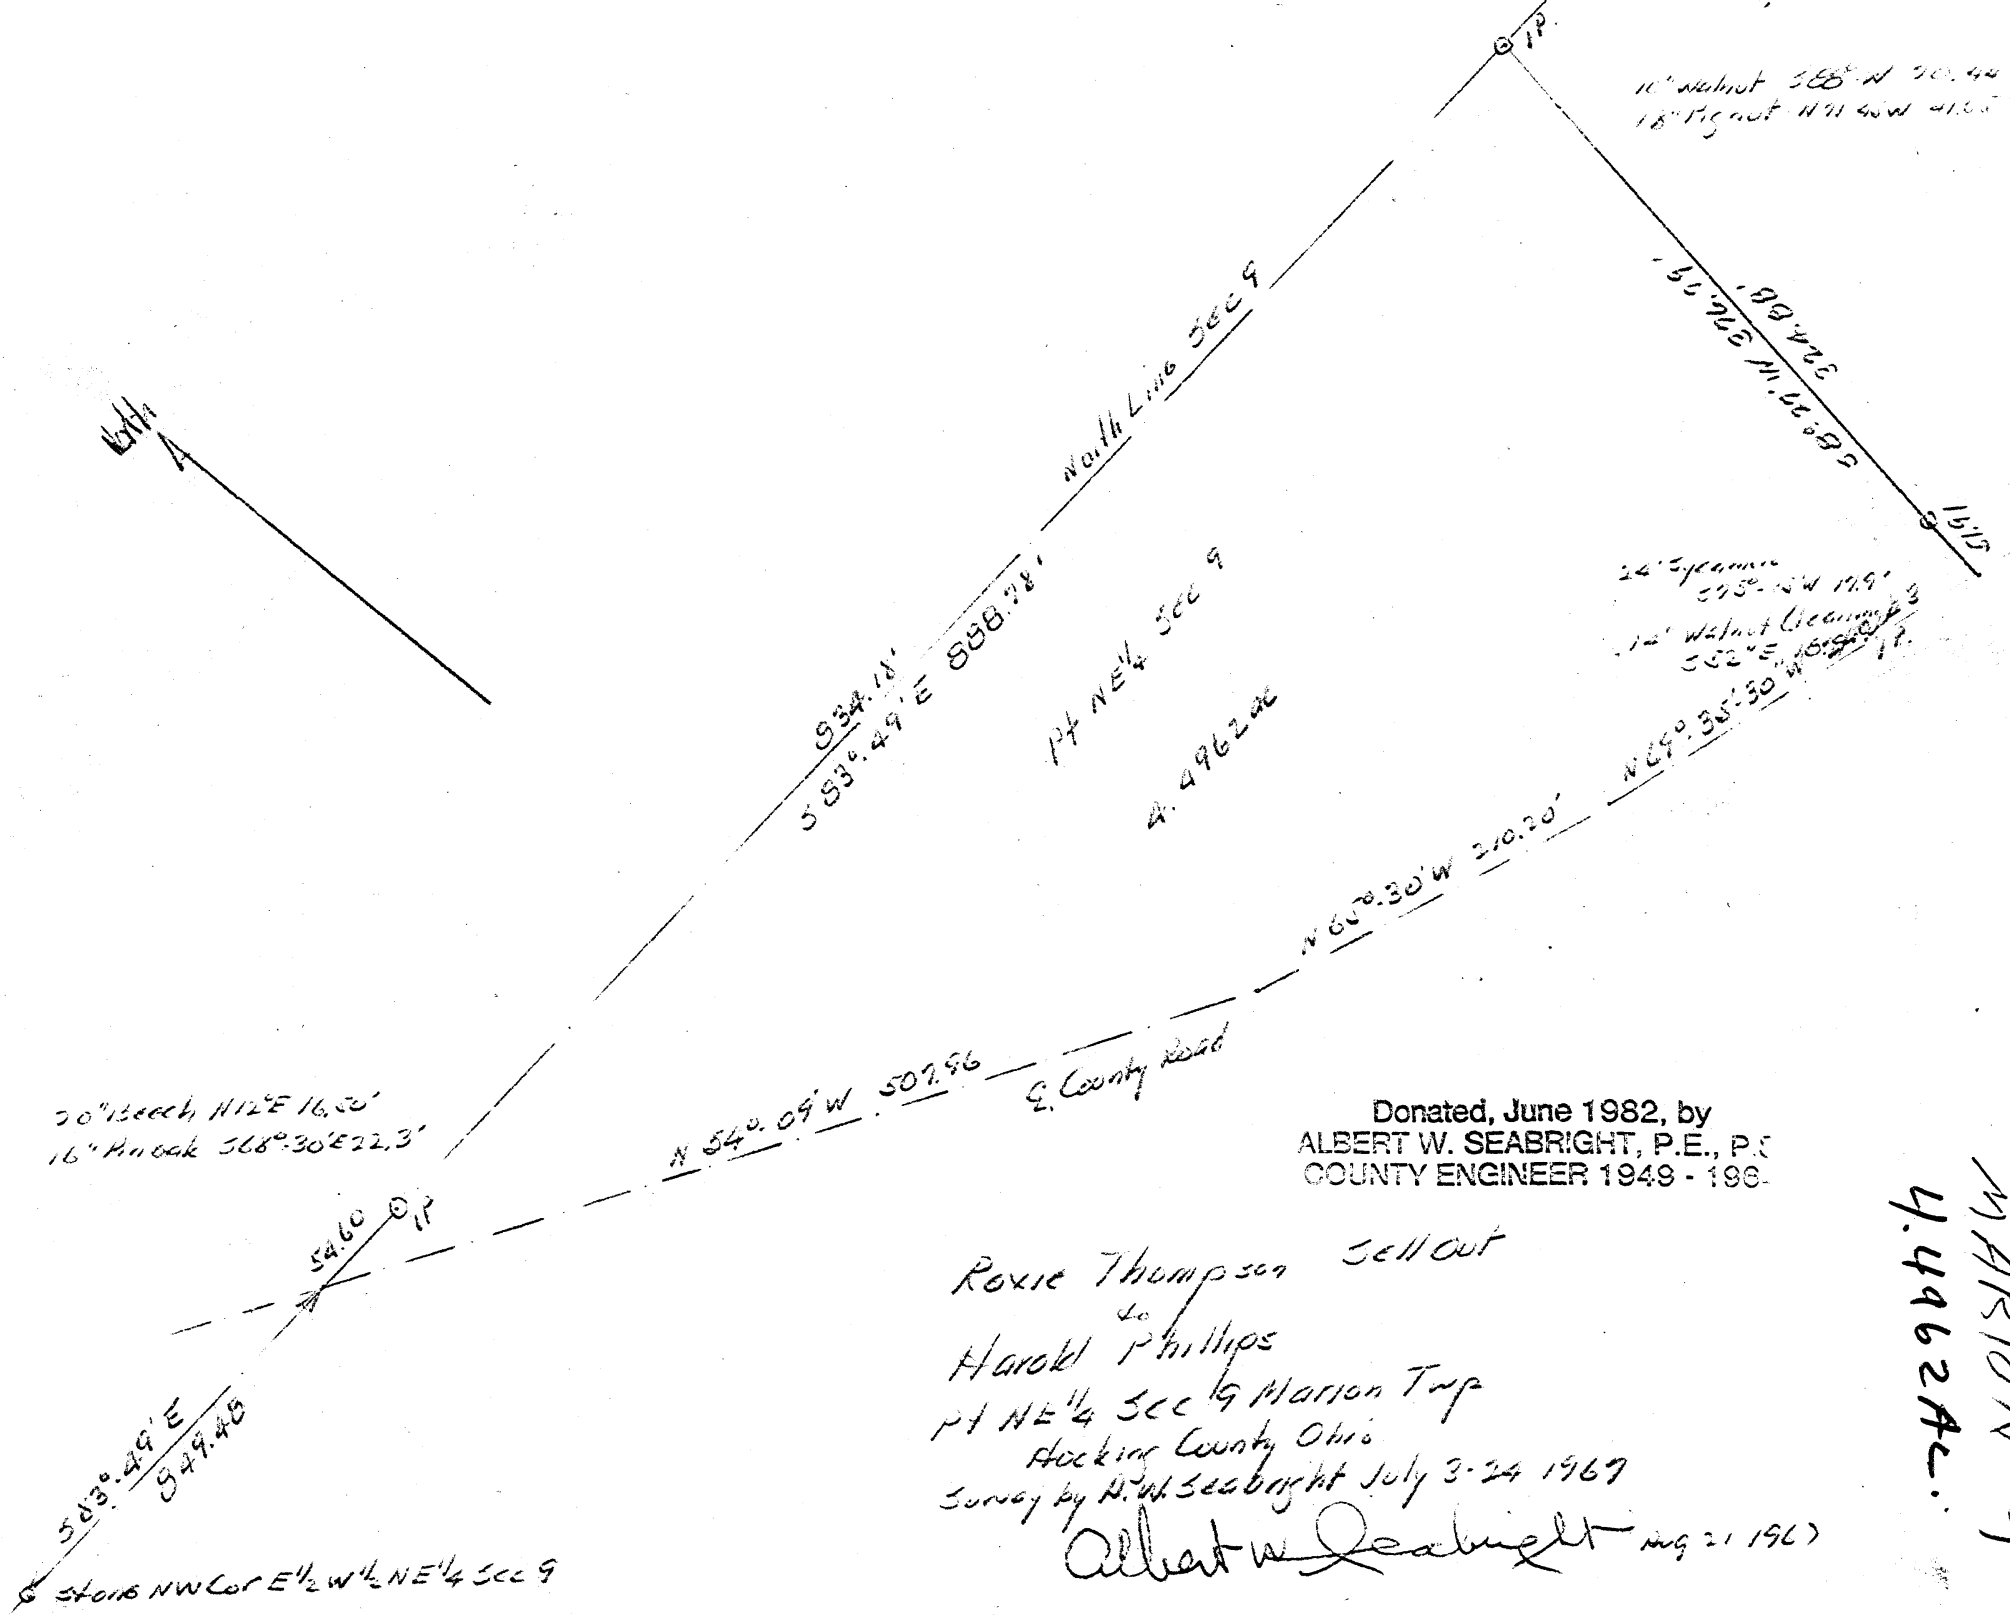 IP.
10" Walnut S88° W 20.44
18" Pignut N71 45W 41.05
S8°.27'W 376.79'
324.88'
51.91
North
North Line Sec 9
934.18'
S83°.49'E 888.78'
Pt NE¼ Sec 9
4.4962 ac
24" Sycamore
17.9'
14" Walnut
S52°E
IP.
N69°.35'.30"W
N65°.30'W 210.20'
N54°.09'W 507.96
₵ County Road
20" Beech N12°E 16.50'
16" Pinoak S68°.30'E 22.3'
54.60
IP
S83°.49'E
849.48
Stone NW Cor E½ W½ NE¼ Sec 9
Donated, June 1982, by
ALBERT W. SEABRIGHT, P.E., P.S
COUNTY ENGINEER 1949 - 196
Roxie Thompson Sell Out
to
Harold Phillips
Pt NE¼ Sec 9 Marion Twp
Hocking County Ohio
Survey by A.W. Seabright July 3-24 1967
Albert W Seabright Aug 21 1967
MARION 9
4.4962 Ac.